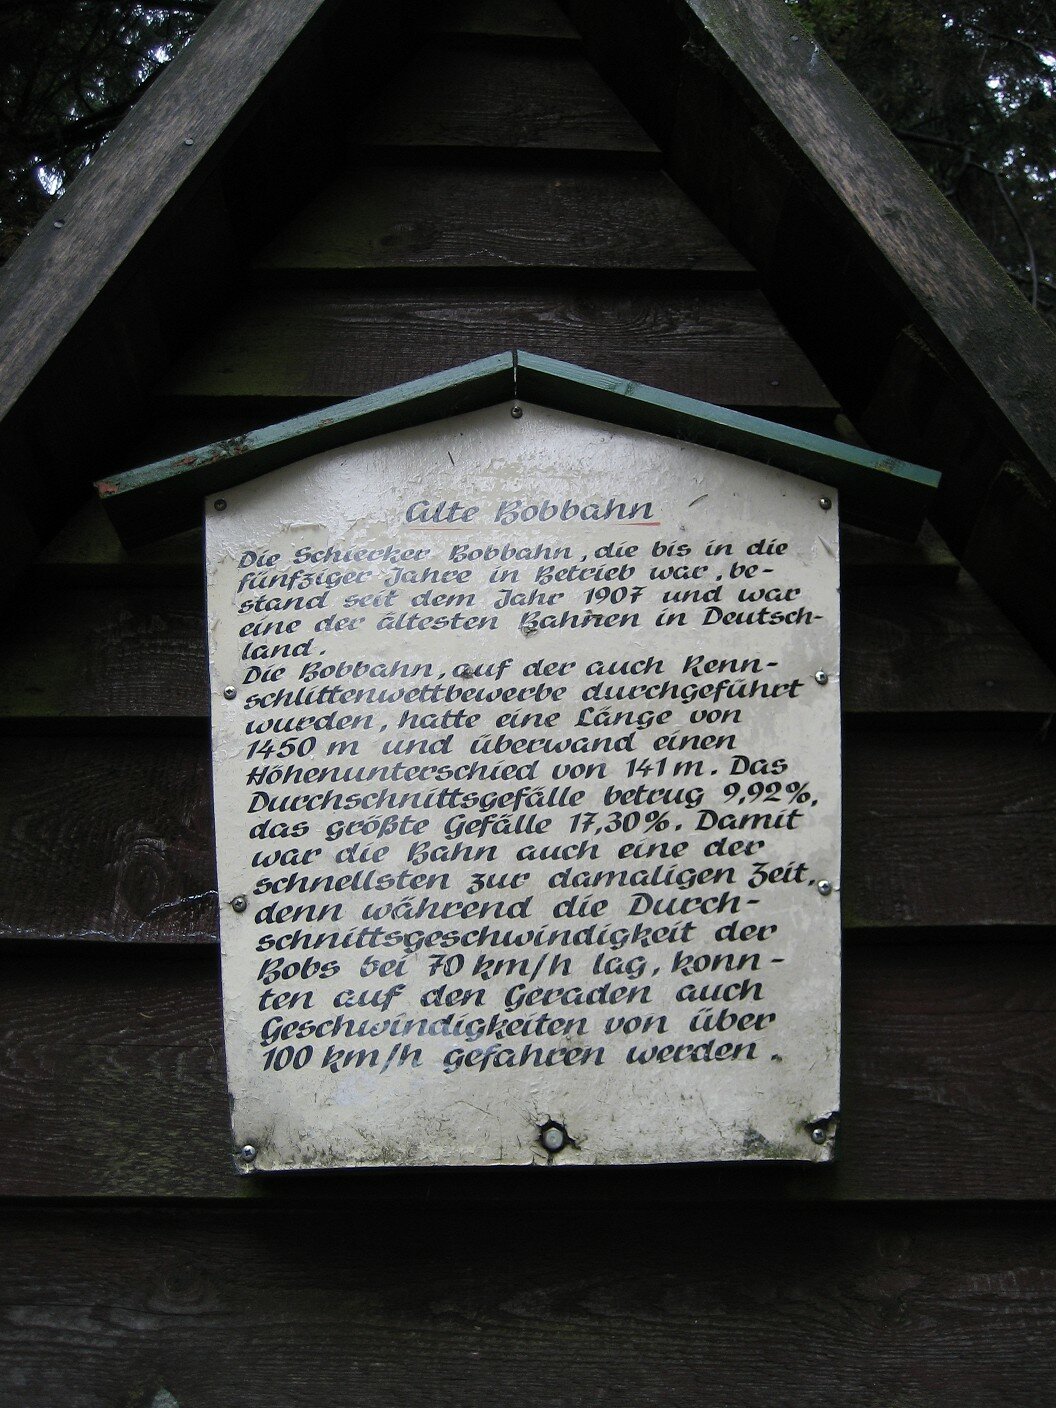 Alte Bobbahn
Die Schierker Bobbahn, die bis in die
fünfziger Jahre in Betrieb war, be-
stand seit dem Jahr 1907 und war
eine der ältesten Bahnen in Deutsch-
land.
Die Bobbahn, auf der auch Renn-
schlittenwettbewerbe durchgeführt
wurden, hatte eine Länge von
1450 m und überwand einen
Höhenunterschied von 141 m. Das
Durchschnittsgefälle betrug 9,92%,
das größte Gefälle 17,30%. Damit
war die Bahn auch eine der
schnellsten zur damaligen Zeit,
denn während die Durch-
schnittsgeschwindigkeit der
Bobs bei 70 km/h lag, konn-
ten auf den Geraden auch
Geschwindigkeiten von über
100 km/h gefahren werden.